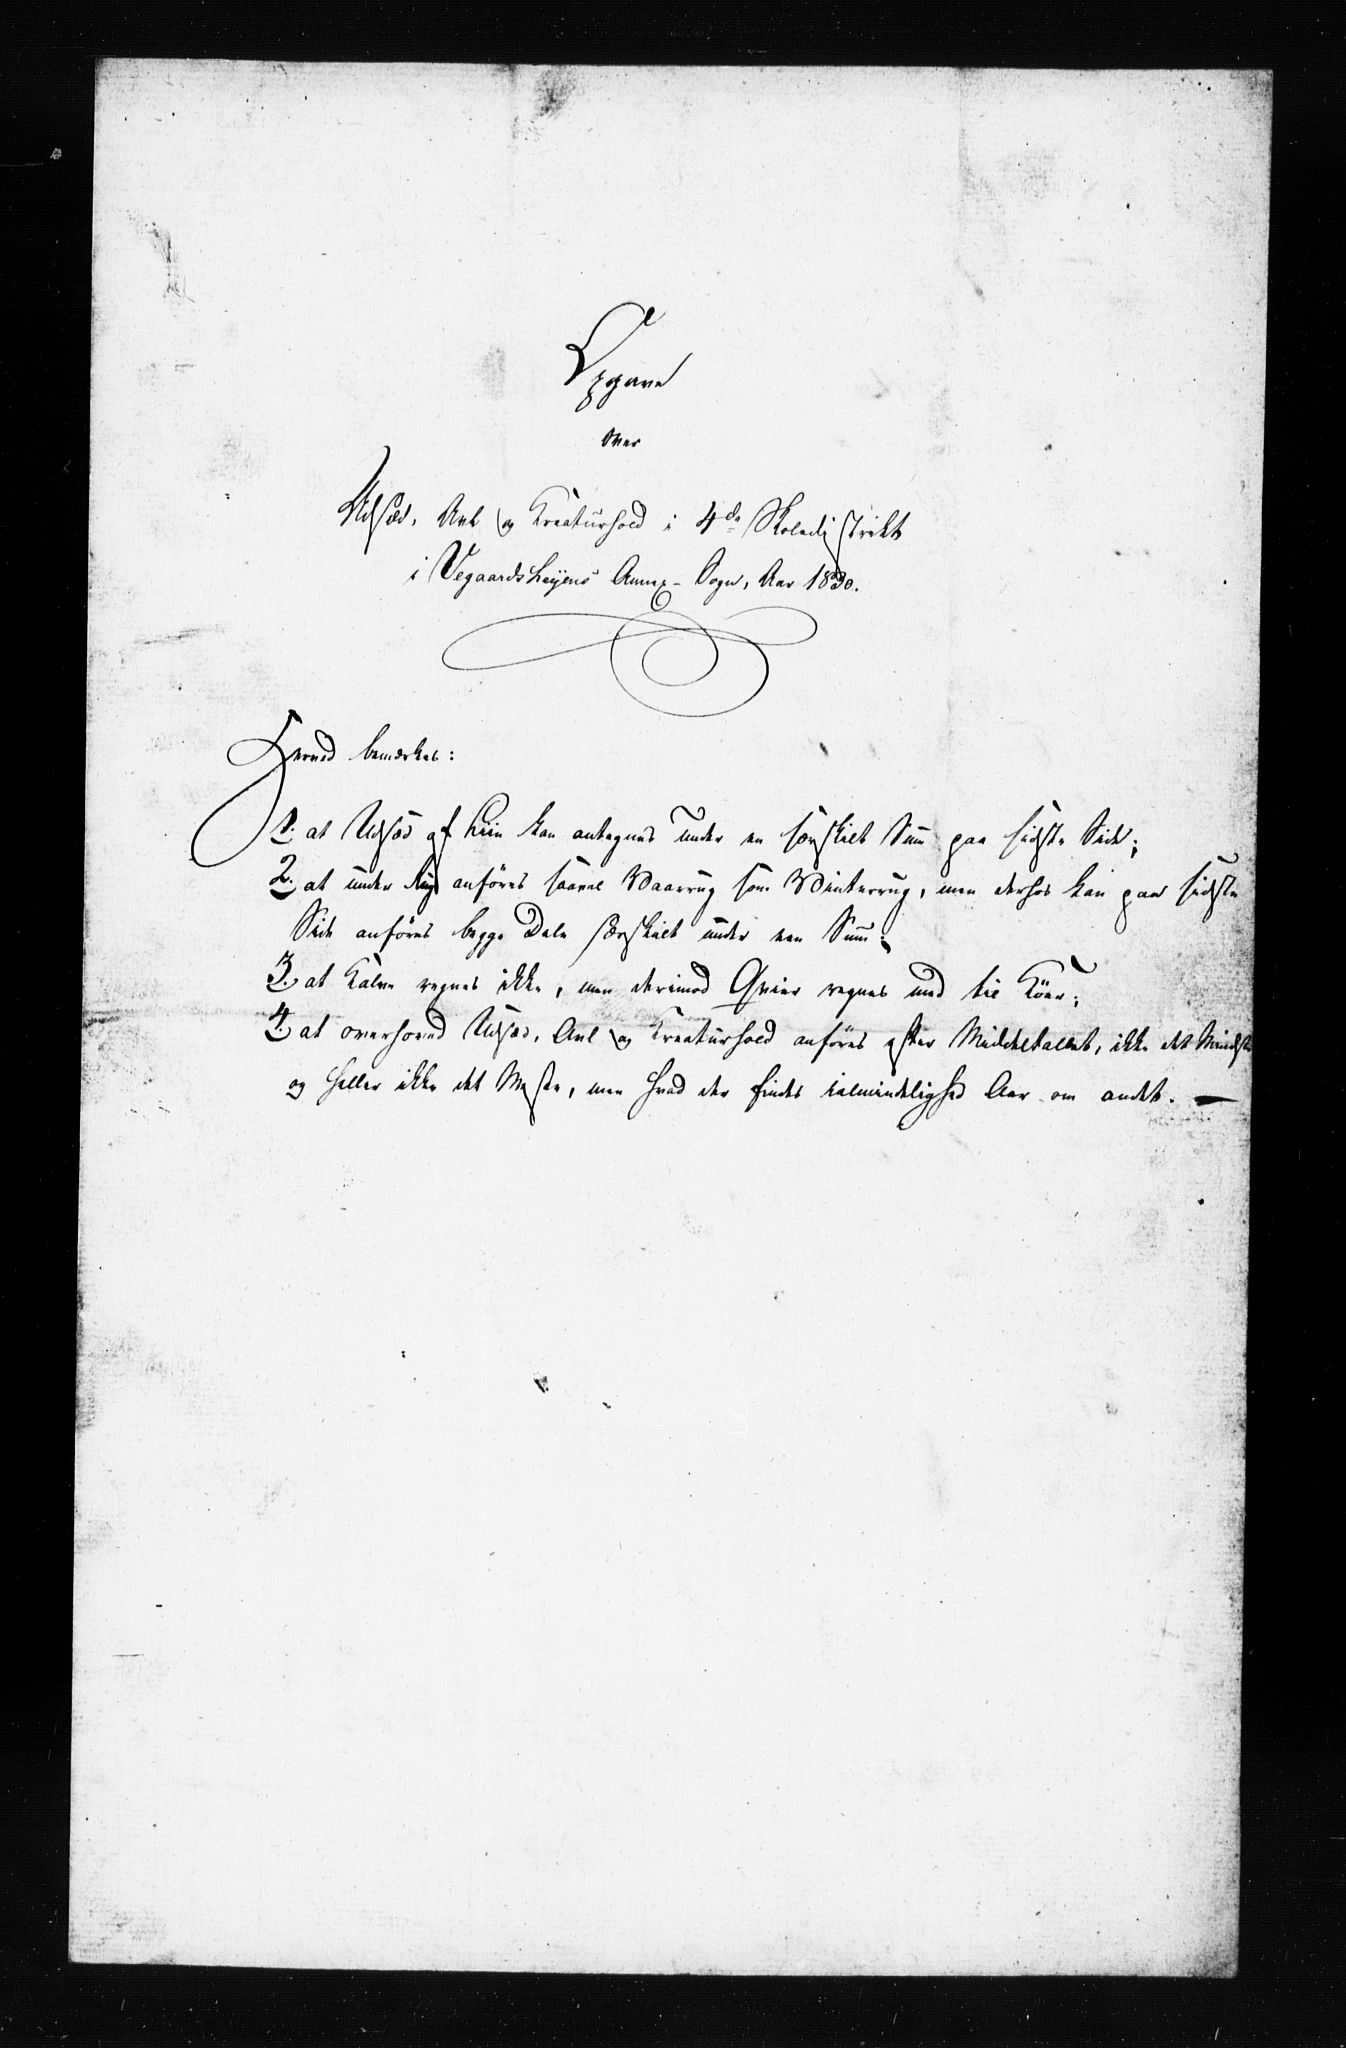 Opgave
over
Udsæd, Avl og Kreaturhold i 4de Skoledistrikt
i Vegaardsheÿens Annex-Sogn, Aar 1830.
Herved bemærkes:
1. at Udsæd af Liin kan antegnes under en særskilt Sum paa sidste Side;
2. at under Rug anföres saavel Vaarrug som Vinterrug, men derhos kan paa sidste
Side anföres begge Dele særskilt under een Sum;
3. at Kalve regnes ikke, men derimod Qvier regnes med til Köer;
4. at overhoved Udsæd, Avl og Kreaturhold anföres efter Middeltallet, ikke det Mindste
og heller ikke det Meste, men hvad der findes i almindelighed Aar om andet. —